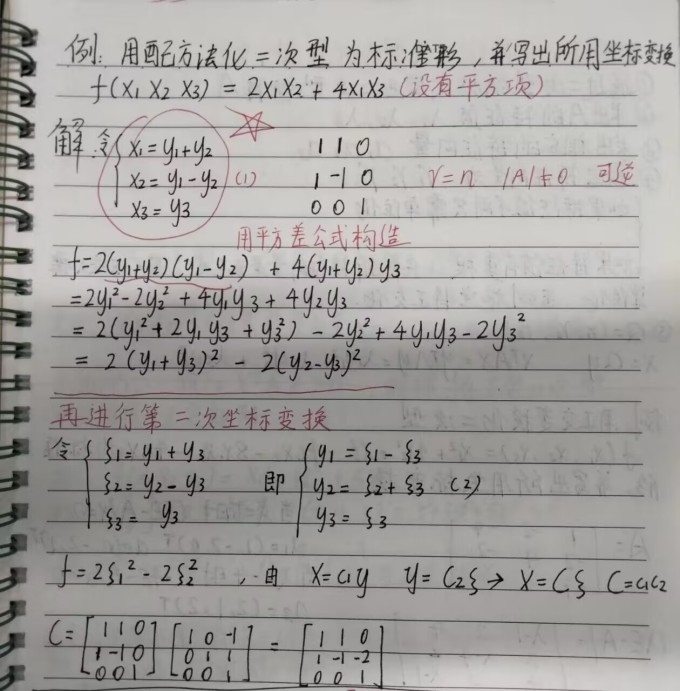 例: 用配方法化二次型为标准型形, 并写出所用坐标变换
f(X1 X2 X3) = 2X1X2 + 4X1X3 (没有平方项)
解: 令 { X1 = y1+y2    1 1 0
X2 = y1-y2 (1)    1 -1 0    r=n |A|≠0 可逆
X3 = y3    0 0 1
用平方差公式构造
f=2(y1+y2)(y1-y2) + 4(y1+y2)y3
=2y1²-2y2² + 4y1y3 + 4y2y3
= 2(y1²+2y1y3+y3²) - 2y2² + 4y1y3 - 2y3²
= 2(y1+y3)² - 2(y2-y3)²
再进行第二次坐标变换
令 { ξ1 = y1+y3    即 { y1 = ξ1-ξ3
ξ2 = y2-y3    y2 = ξ2+ξ3 (2)
ξ3 = y3    y3 = ξ3
f=2ξ1²-2ξ2² , 由 X=C1y y=C2ξ → X=Cξ C=C1C2
C = [1 1 0] [1 0 -1] = [1 1 0]
[1 -1 0] [0 1 1] [1 -1 -2]
[0 0 1] [0 0 1] [0 0 1]